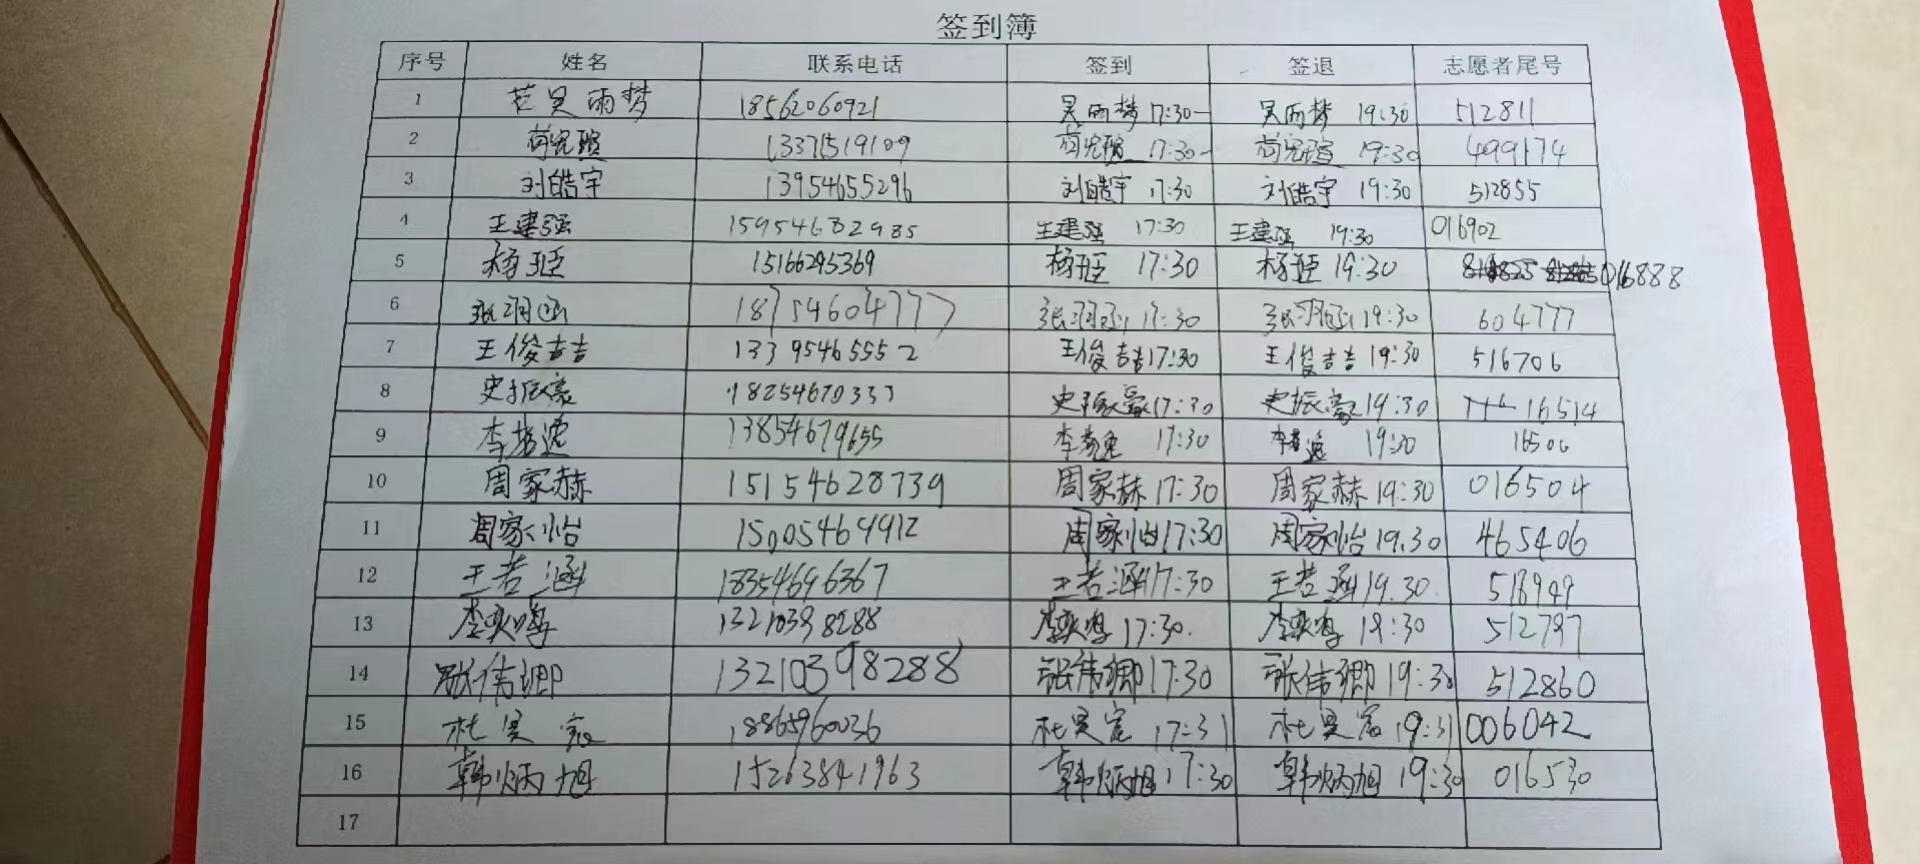 签到簿
序号 姓名 联系电话 签到 签退 志愿者尾号
1 吴雨梦 18562060921 吴雨梦 17:30- 吴雨梦 19:30 512811
2 13371519109 17:30- 19:30 499174
3 刘皓宇 13954655296 刘皓宇 17:30 刘皓宇 19:30 512855
4 王建强 15954682985 王建强 17:30 王建强 19:30 016902
5 杨珽 15166295369 杨珽 17:30 杨珽 19:30 016888
6 张羽函 18754604777 张羽函 17:30 张羽函 19:30 604777
7 王俊吉吉 13395465552 王俊吉吉 17:30 王俊吉吉 19:30 516706
8 史振豪 18254670333 史振豪 17:30 史振豪 19:30 16514
9 13854679655 17:30 19:30 16506
10 周家赫 15154628739 周家赫 17:30 周家赫 19:30 016504
11 周家怡 15005464912 周家怡 17:30 周家怡 19.30 465406
12 王若涵 18354696367 王若涵 17:30 王若涵 19.30 518949
13 李奕鸣 13210398288 李奕鸣 17:30. 李奕鸣 19:30 512797
14 张伟卿 13210398288 张伟卿 17:30 张伟卿 19:30 512860
15 杜昊宸 18865960036 杜昊宸 17:31 杜昊宸 19:31 006042
16 韩炳旭 15263841963 韩炳旭 17:30 韩炳旭 19:30 016530
17